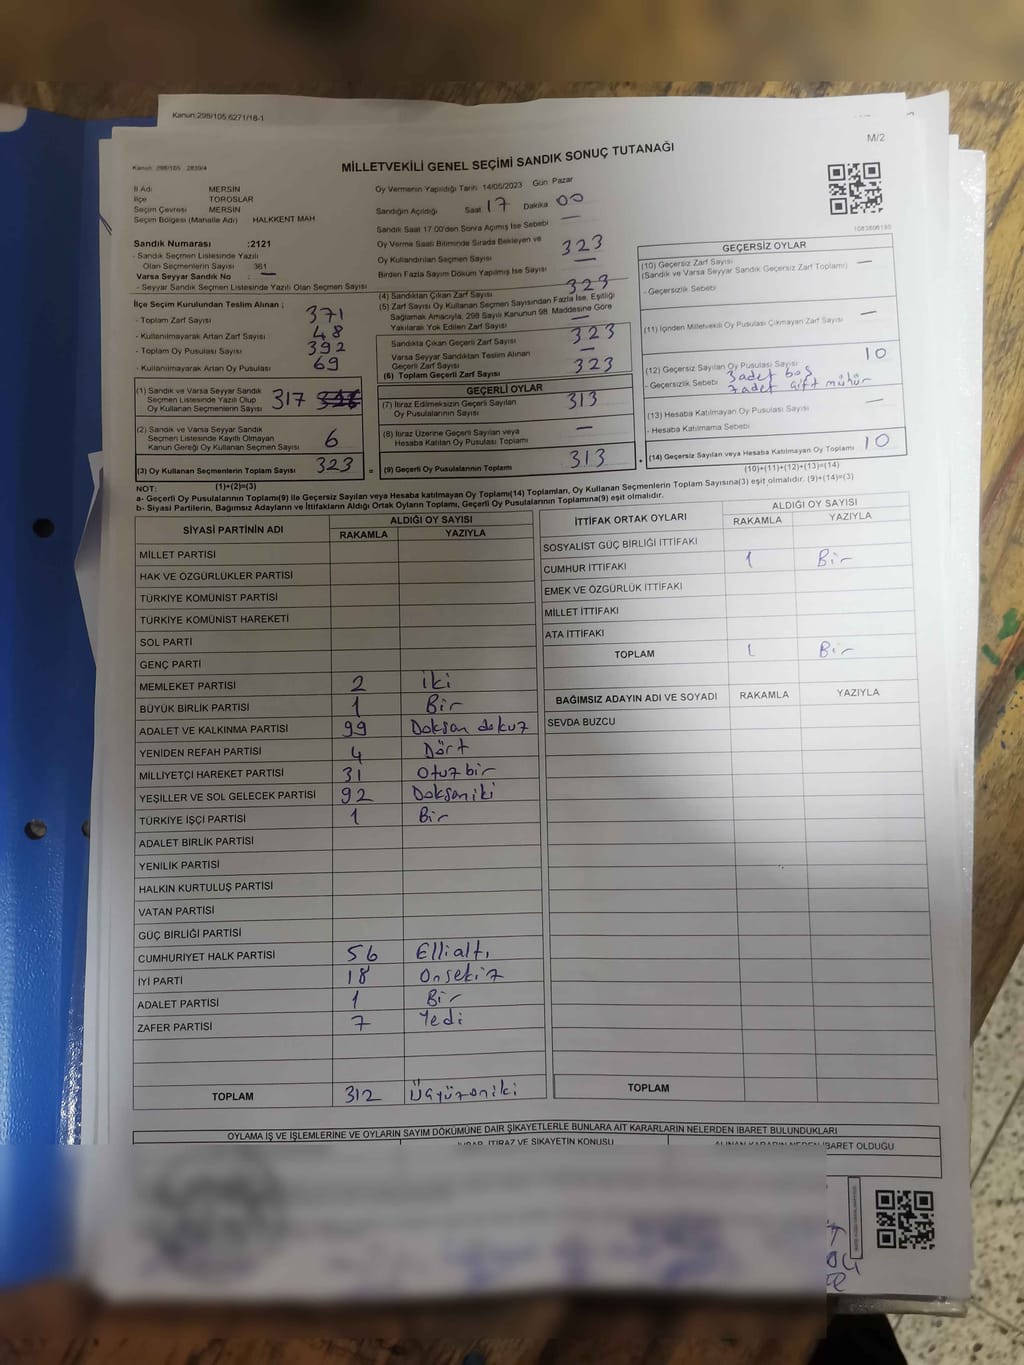 Kanun:298/105;6271/18-1
Kanun: 298/105 2839/4
MİLLETVEKİLİ GENEL SEÇİMİ SANDIK SONUÇ TUTANAĞI
M/2
İl Adı MERSİN
İlçe TOROSLAR
Seçim Çevresi MERSİN
Seçim Bölgesi (Mahalle Adı) HALKKENT MAH.
Sandık Numarası :2121
- Sandık Seçmen Listesinde Yazılı
Olan Seçmenlerin Sayısı 361
Varsa Seyyar Sandık No : —
- Seyyar Sandık Seçmen Listesinde Yazılı Olan Seçmen Sayısı
Oy Vermenin Yapıldığı Tarih 14/05/2023 Gün Pazar
Sandığın Açıldığı Saat 17 Dakika 00
Sandık Saat 17.00'den Sonra Açılmış İse Sebebi —
Oy Verme Saati Bitiminde Sırada Bekleyen ve
Oy Kullandırılan Seçmen Sayısı 323
Birden Fazla Sayım Döküm Yapılmış İse Sayısı —
İlçe Seçim Kurulundan Teslim Alınan ;
- Toplam Zarf Sayısı 371
- Kullanılmayarak Artan Zarf Sayısı 48
- Toplam Oy Pusulası Sayısı 392
- Kullanılmayarak Artan Oy Pusulası 69
(1) Sandık ve Varsa Seyyar Sandık
Seçmen Listesinde Yazılı Olup
Oy Kullanan Seçmenlerin Sayısı 317
(2) Sandık ve Varsa Seyyar Sandık
Seçmen Listesinde Kayıtlı Olmayan
Kanun Gereği Oy Kullanan Seçmen Sayısı 6
(3) Oy Kullanan Seçmenlerin Toplam Sayısı 323 =
(1)+(2)=(3)
(4) Sandıktan Çıkan Zarf Sayısı 323
(5) Zarf Sayısı Oy Kullanan Seçmen Sayısından Fazla İse, Eşitliği
Sağlamak Amacıyla, 298 Sayılı Kanunun 98. Maddesine Göre
Yakılarak Yok Edilen Zarf Sayısı —
Sandıkta Çıkan Geçerli Zarf Sayısı 323
Varsa Seyyar Sandıktan Teslim Alınan
Geçerli Zarf Sayısı —
(6) Toplam Geçerli Zarf Sayısı 323
GEÇERLİ OYLAR
(7) İtiraz Edilmeksizin Geçerli Sayılan
Oy Pusulalarının Sayısı 313
(8) İtiraz Üzerine Geçerli Sayılan veya
Hesaba Katılan Oy Pusulası Toplamı —
(9) Geçerli Oy Pusulalarının Toplamı 313 +
1083806195
GEÇERSİZ OYLAR
(10) Geçersiz Zarf Sayısı —
(Sandık ve Varsa Seyyar Sandık Geçersiz Zarf Toplamı)
- Geçersizlik Sebebi
(11) İçinden Milletvekili Oy Pusulası Çıkmayan Zarf Sayısı —
(12) Geçersiz Sayılan Oy Pusulası Sayısı 10
- Geçersizlik Sebebi 3 adet boş
7 adet çift mühür
(13) Hesaba Katılmayan Oy Pusulası Sayısı —
- Hesaba Katılmama Sebebi
(14) Geçersiz Sayılan veya Hesaba Katılmayan Oy Toplamı 10
(10)+(11)+(12)+(13)=(14)
NOT:
a- Geçerli Oy Pusulalarının Toplamı(9) ile Geçersiz Sayılan veya Hesaba katılmayan Oy Toplamı(14) Toplamları, Oy Kullanan Seçmenlerin Toplam Sayısına(3) eşit olmalıdır. (9)+(14)=(3)
b- Siyasi Partilerin, Bağımsız Adayların ve İttifakların Aldığı Ortak Oyların Toplamı, Geçerli Oy Pusulalarının Toplamına(9) eşit olmalıdır.
SİYASİ PARTİNİN ADI ALDIĞI OY SAYISI
RAKAMLA YAZIYLA
MİLLET PARTİSİ
HAK VE ÖZGÜRLÜKLER PARTİSİ
TÜRKİYE KOMÜNİST PARTİSİ
TÜRKİYE KOMÜNİST HAREKETİ
SOL PARTİ
GENÇ PARTİ
MEMLEKET PARTİSİ 2 iki
BÜYÜK BİRLİK PARTİSİ 1 Bir
ADALET VE KALKINMA PARTİSİ 99 Doksan dokuz
YENİDEN REFAH PARTİSİ 4 Dört
MİLLİYETÇİ HAREKET PARTİSİ 31 Otuzbir
YEŞİLLER VE SOL GELECEK PARTİSİ 92 Doksaniki
TÜRKİYE İŞÇİ PARTİSİ 1 Bir
ADALET BİRLİK PARTİSİ
YENİLİK PARTİSİ
HALKIN KURTULUŞ PARTİSİ
VATAN PARTİSİ
GÜÇ BİRLİĞİ PARTİSİ
CUMHURİYET HALK PARTİSİ 56 Ellialtı
İYİ PARTİ 18 Onsekiz
ADALET PARTİSİ 1 Bir
ZAFER PARTİSİ 7 Yedi
TOPLAM 312 Üçyüzoniki
İTTİFAK ORTAK OYLARI ALDIĞI OY SAYISI
RAKAMLA YAZIYLA
SOSYALİST GÜÇ BİRLİĞİ İTTİFAKI
CUMHUR İTTİFAKI 1 Bir
EMEK VE ÖZGÜRLÜK İTTİFAKI
MİLLET İTTİFAKI
ATA İTTİFAKI
TOPLAM 1 Bir
BAĞIMSIZ ADAYIN ADI VE SOYADI RAKAMLA YAZIYLA
SEVDA BUZCU
TOPLAM
OYLAMA İŞ VE İŞLEMLERİNE VE OYLARIN SAYIM DÖKÜMÜNE DAİR ŞİKAYETLERLE BUNLARA AİT KARARLARIN NELERDEN İBARET BULUNDUKLARI
İHBAR, İTİRAZ VE ŞİKAYETİN KONUSU ALINAN KARARIN NEDEN İBARET OLDUĞU